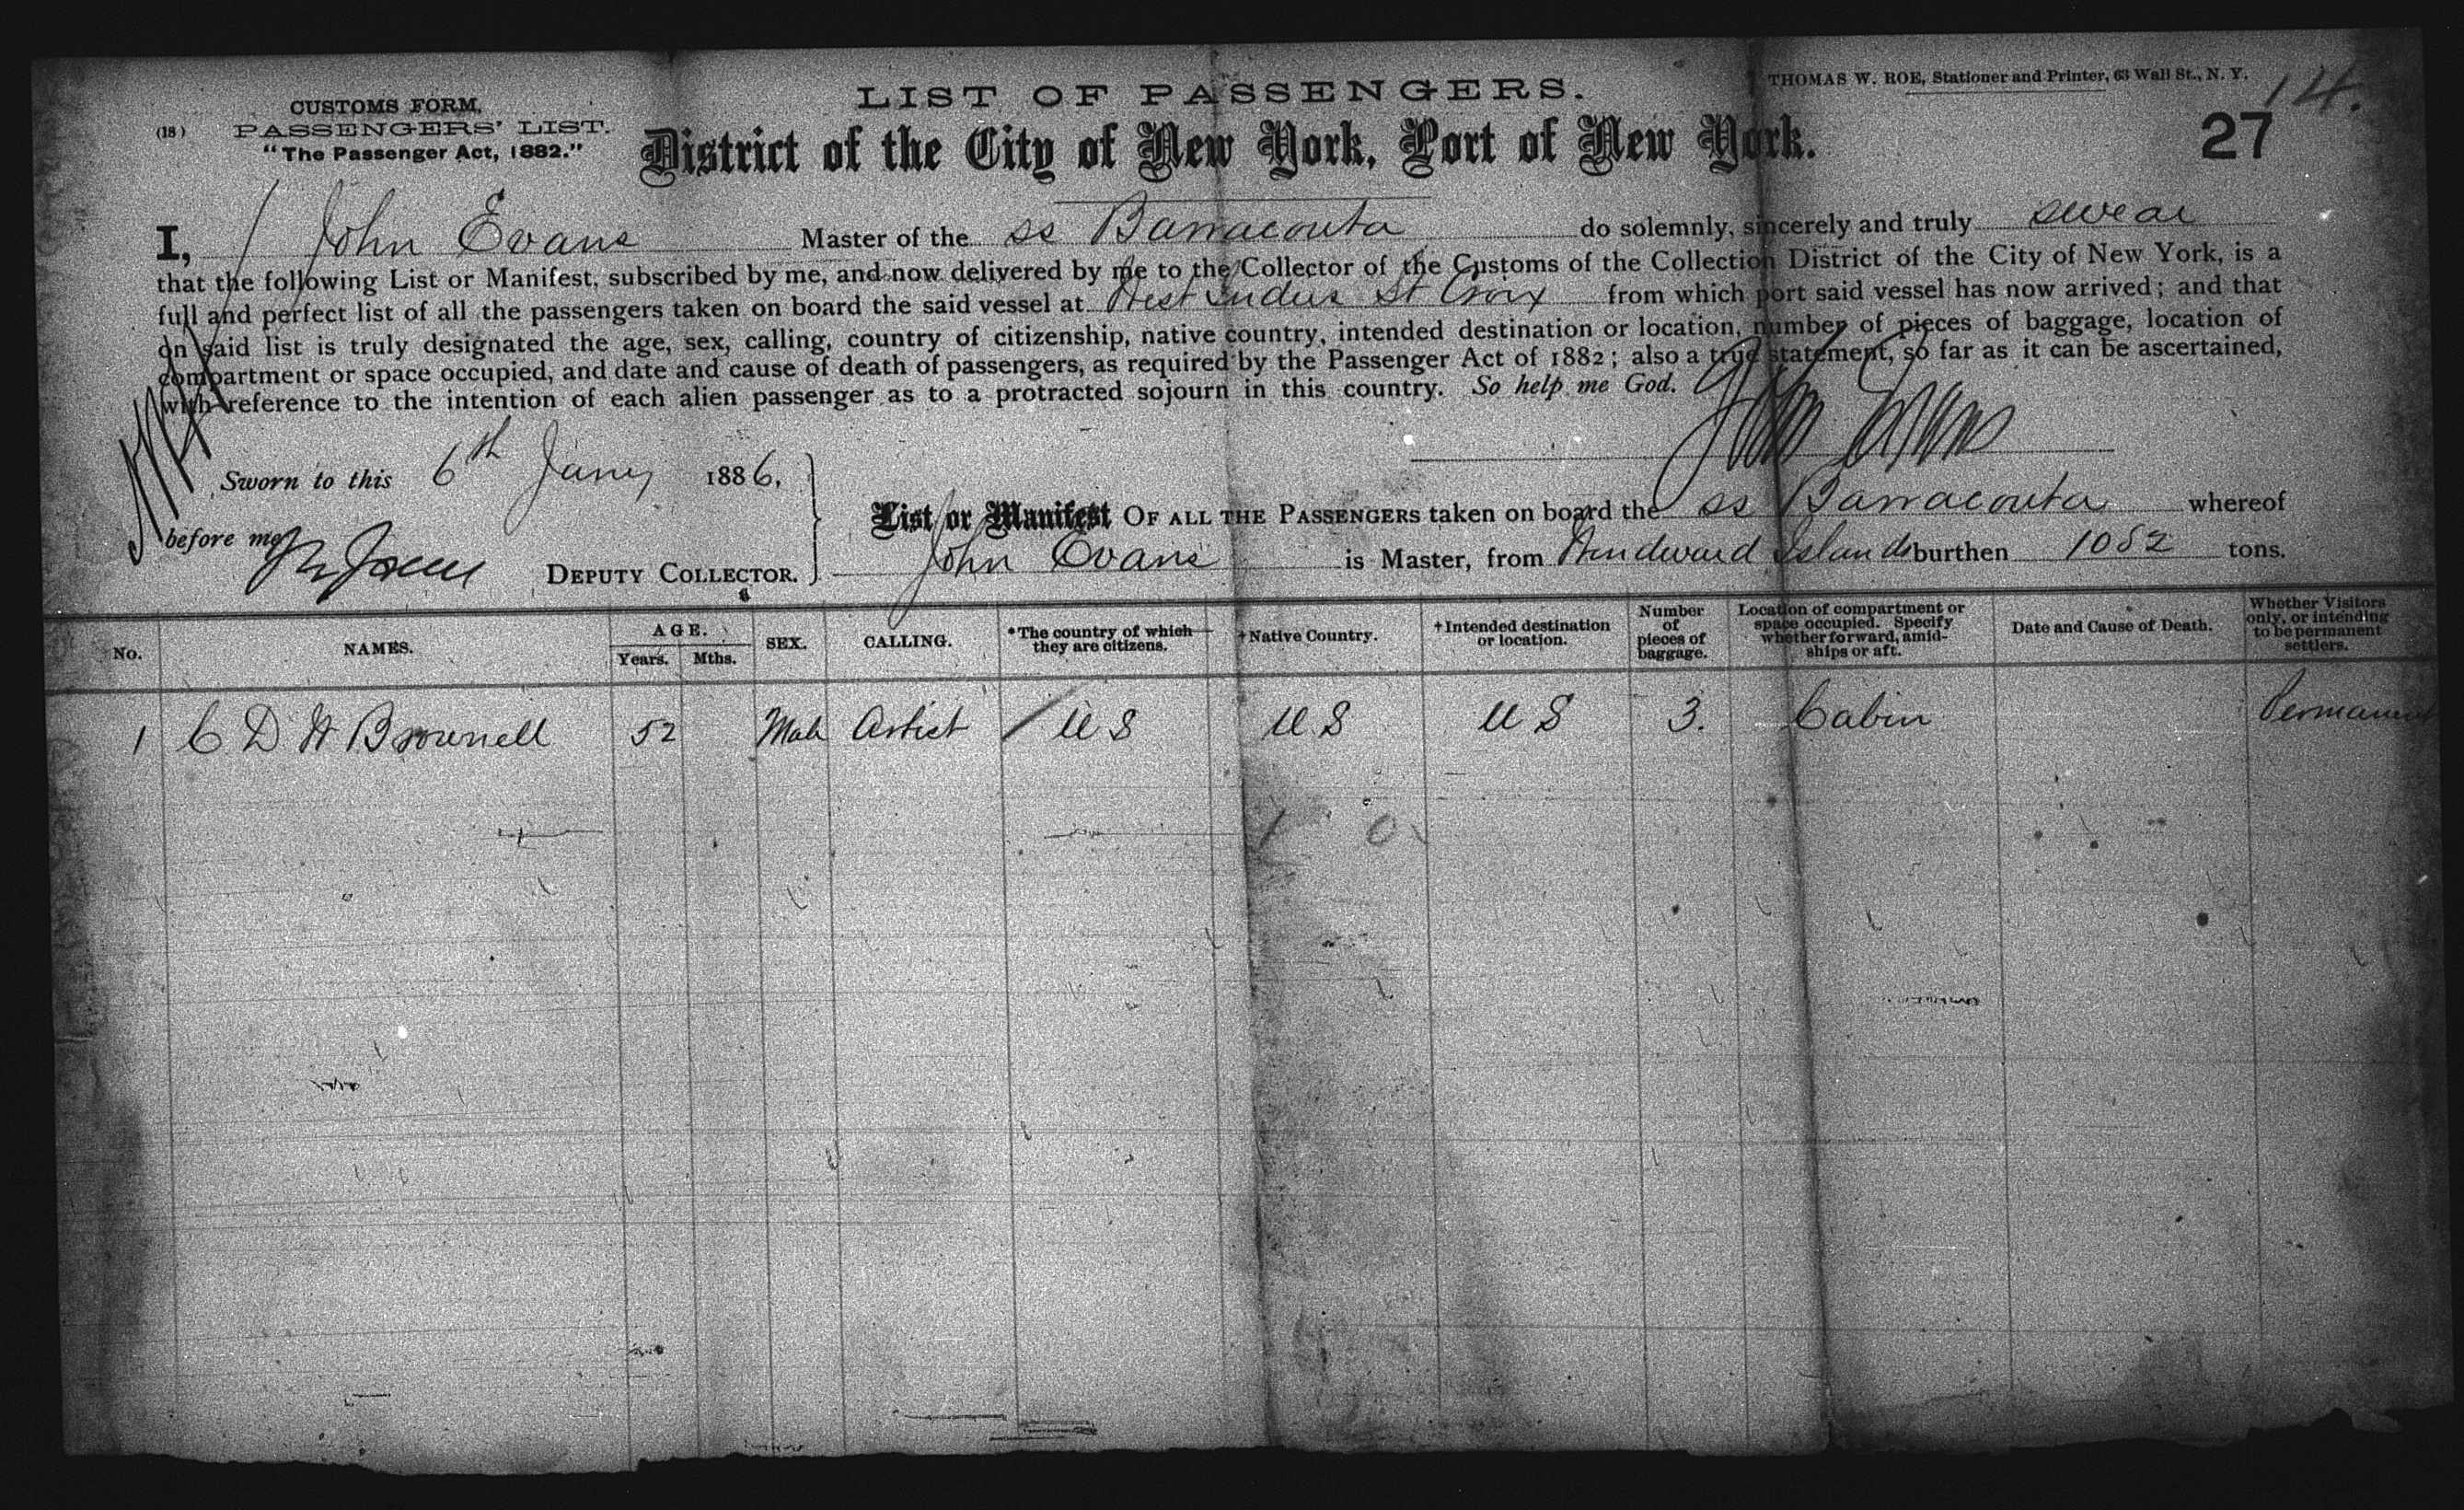 CUSTOMS FORM.
(18) PASSENGERS' LIST.
"The Passenger Act, 1882."
LIST OF PASSENGERS.
THOMAS W. ROE, Stationer and Printer, 63 Wall St., N. Y.
14.
District of the City of New York, Port of New York.
27
I, John Evans Master of the ss Barracouta do solemnly, sincerely and truly swear
that the following List or Manifest, subscribed by me, and now delivered by me to the Collector of the Customs of the Collection District of the City of New York, is a
full and perfect list of all the passengers taken on board the said vessel at West Indies St Croix from which port said vessel has now arrived; and that
on said list is truly designated the age, sex, calling, country of citizenship, native country, intended destination or location, number of pieces of baggage, location of
compartment or space occupied, and date and cause of death of passengers, as required by the Passenger Act of 1882; also a true statement, so far as it can be ascertained,
with reference to the intention of each alien passenger as to a protracted sojourn in this country. So help me God.
John Evans
Sworn to this 6th Jany 1886,
before me
DEPUTY COLLECTOR.
List or Manifest OF ALL THE PASSENGERS taken on board the ss Barracouta whereof
John Evans is Master, from Windward Islands burthen 1052 tons.
No. NAMES. AGE. Years. Mths. SEX. CALLING. *The country of which they are citizens. †Native Country. †Intended destination or location. Number of pieces of baggage. Location of compartment or space occupied. Specify whether forward, amidships or aft. Date and Cause of Death. Whether Visitors only, or intending to be permanent settlers.
1 C D W Brownell 52 Male Artist U S U S U S 3. Cabin Permanent
1 0